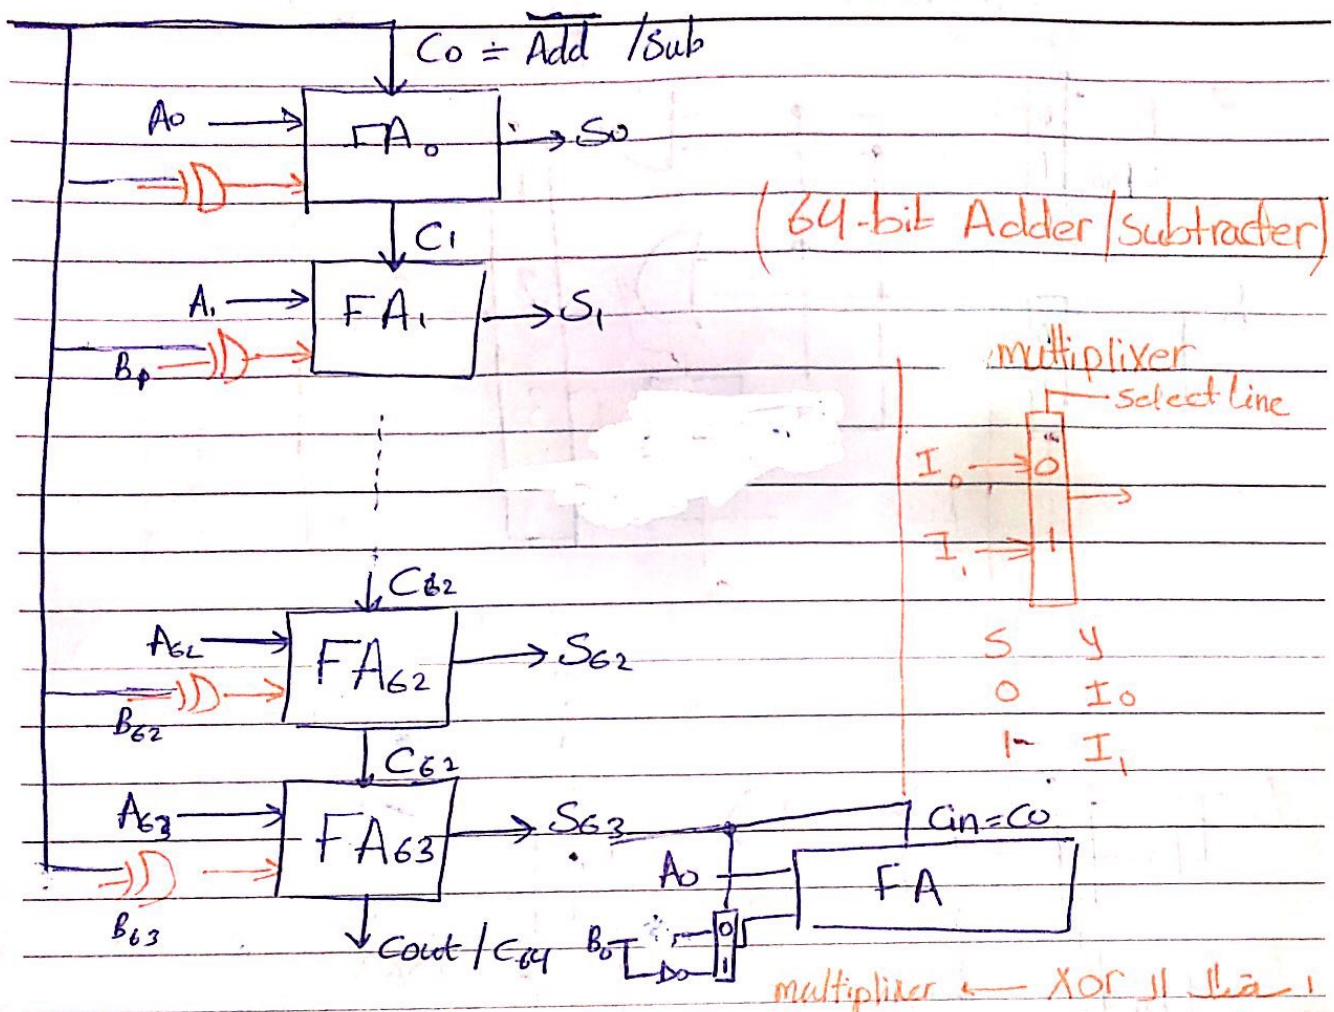 C0 = Add / Sub
A0
FA0
S0
C1
(64-bit Adder/Subtracter)
A1
FA1
S1
Bp
multiplixer
select line
I0
0
I1
1
C62
A62
FA62
S62
B62
S y
0 I0
1 I1
C62
A63
FA63
S63
Cin=C0
A0
FA
B63
Cout / C64
B0
0
1
multiplixer ← XOR ال